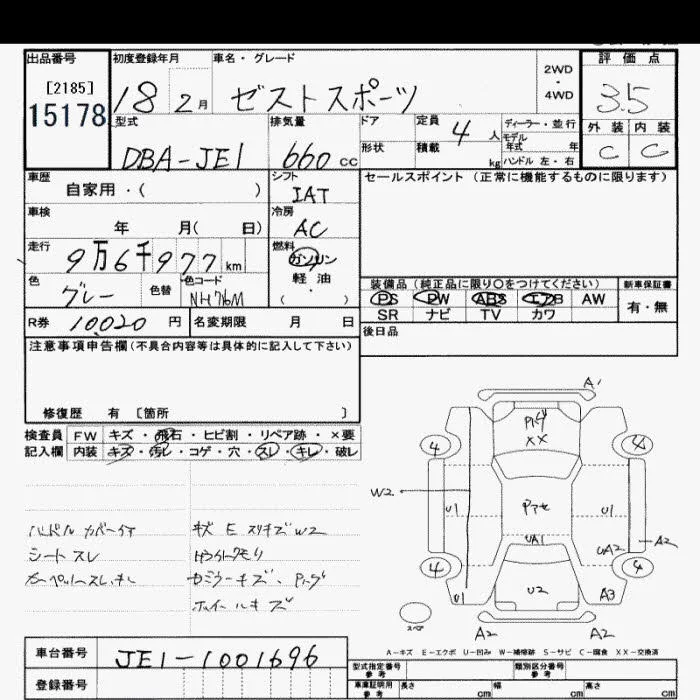 出品番号
[2185]
15178
初度登録年月
18 2月
車名・グレード
ゼストスポーツ
2WD
・
4WD
評価点
3.5
外装 内装
C C
型式
DBA-JE1
排気量
660 cc
ドア
形状
定員 4 人
積載 kg
ディーラー・並行
モデル
年式 年
ハンドル 左・右
車歴
自家用・( )
シフト
IAT
車検
年 月( 日)
冷房
AC
走行
9万6千977 km
燃料
ガソリン
軽油
( ・ )
色
グレー
色替
色コード
NH76M
R券 10020 円
名変期限 月 日
セールスポイント (正常に機能するものに限ります)
装備品 (純正品に限り○をつけてください)
PS PW ABS エアB AW
SR ナビ TV カワ
新車保証書
有・無
後日品
注意事項申告欄(不具合内容等は具体的に記入して下さい)
修復歴 有 〔箇所 〕
検査員
記入欄
FW キズ・飛石・ヒビ割・リペア跡・×要
内装 キズ・汚レ・コゲ・穴・スレ・キレ・破レ
シートスレ
ホイールキズ
A1
XX
4
4
W2
U1
U1
UA1
UA2
A2
4
4
U2
U1
A3
スペア
A2
A2
A-キズ E-エクボ U-凹み W-補修跡 S-サビ C-腐食 XX-交換済
車台番号
JE1-1001696
登録番号
型式指定番号
参考
類別区分番号
参考
車庫証明用
参考
長さ cm
幅 cm
高さ cm